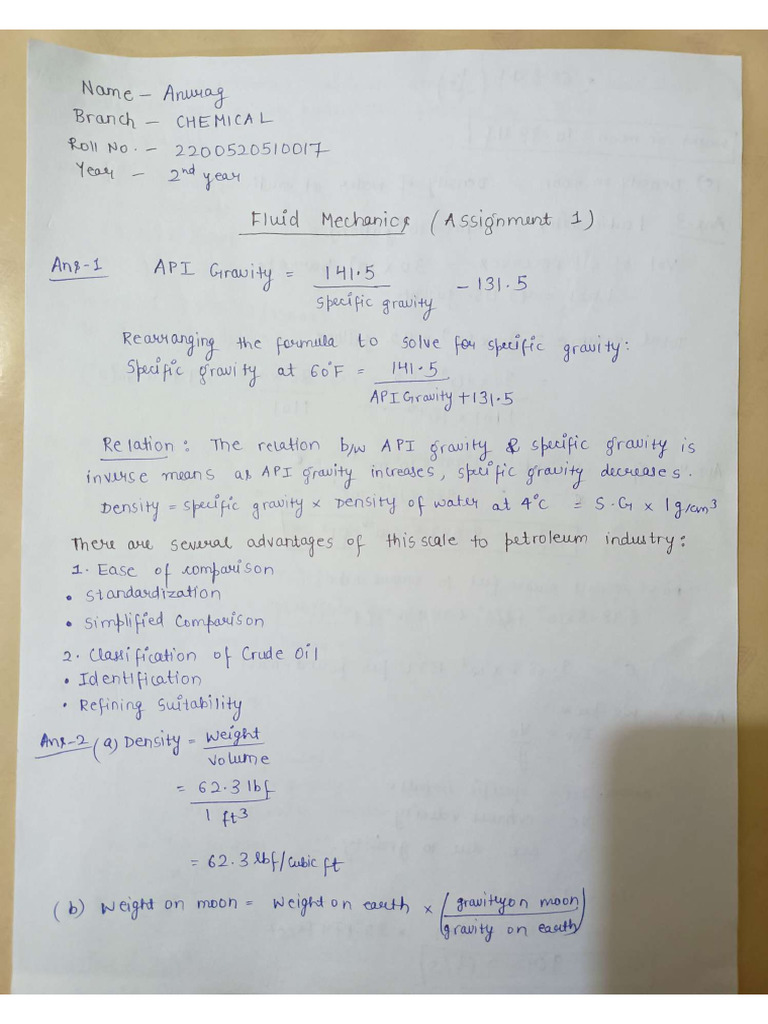 Name - Anurag
Branch - CHEMICAL
Roll No. - 2200520510017
Year - 2nd year
Fluid Mechanics (Assignment 1)
Ans-1 API Gravity = 141.5 / specific gravity - 131.5
Rearranging the formula to solve for specific gravity:
Specific gravity at 60°F = 141.5 / API Gravity + 131.5
Relation: The relation b/w API gravity & specific gravity is
inverse means as API gravity increases, specific gravity decreases.
Density = specific gravity × Density of water at 4°C = S.G × 1 g/cm³
There are several advantages of this scale to petroleum industry:
1. Ease of comparison
• Standardization
• Simplified Comparison
2. Classification of Crude Oil
• Identification
• Refining Suitability
Ans-2 (a) Density = Weight / Volume
= 62.3 lbf / 1 ft³
= 62.3 lbf/cubic ft
(b) Weight on moon = Weight on earth × (gravity on moon / gravity on earth)